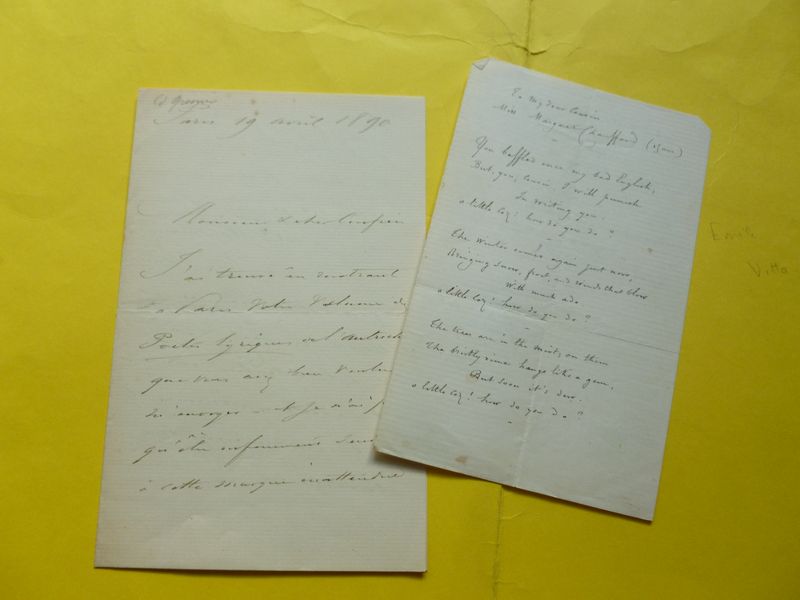 Paris 19 avril 1890
Monsieur
J'ai trouvé en rentrant
à Paris votre volume des
Poètes lyriques de l'Autriche
que vous avez bien voulu
m'envoyer et je n'ai p
qu'être infiniment sens
à cette marque inattendue
To my dear cousin
Miss Margaret
You baffled once my bad English,
But, you, cousin, I will punish
In writing you.
o little Coz! how do you do?
The Winter comes again just now,
Bringing snow, frost, and winds that blow
With much ado
o little Coz! how do you do?
The trees are in the mist; on them
The brittly rime hangs like a gem,
But soon it's dew.
o little Coz! how do you do?
Emile
Vitta